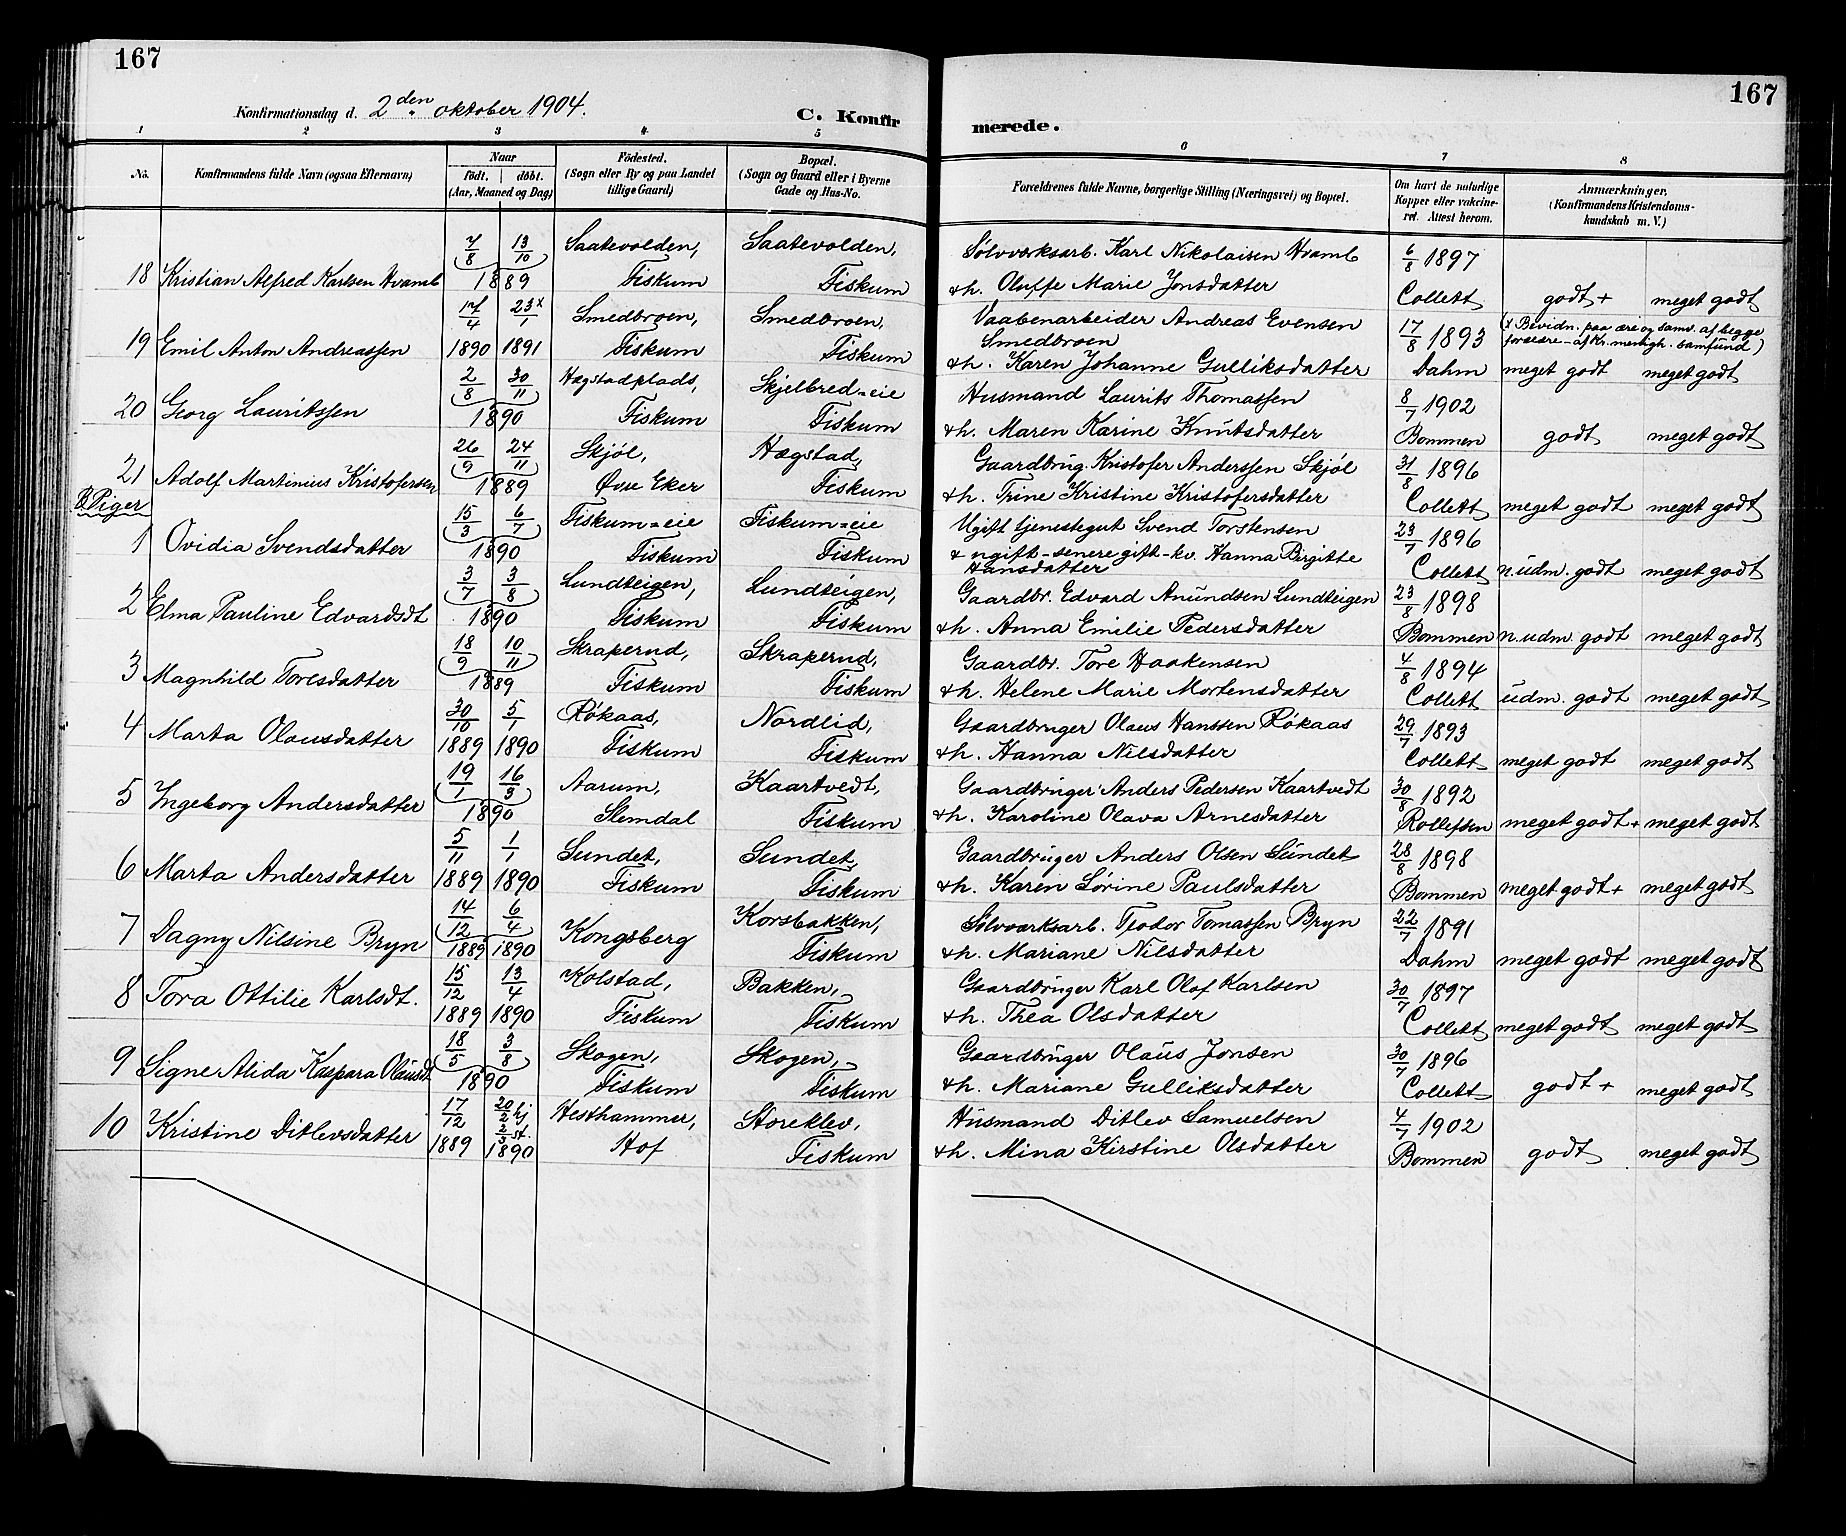 167
167
Konfirmationsdag d. 2den oktober 1904.
C. Konfirmerede.
1 2 3 4 5 6 7 8
No.
Konfirmandens fulde Navn (ogsaa Efternavn)
Naar
födt. döbt.
(Aar, Maaned og Dag)
Födested.
(Sogn eller By og paa Landet
tillige Gaard)
Bopæl.
(Sogn og Gaard eller i Byerne
Gade og Hus-No.
Forældrenes fulde Navne, borgerlige Stilling (Næringsvei) og Bopæl.
Om havt de naturlige
Kopper eller vakcine-
ret. Attest herom.
Anmærkninger.
(Konfirmandens Kristendoms-
kundskab m. V.)
7/8 13/10 Saatevolden, Saatevolden, Sølvværksarb. Karl Nikolaisen Hvamb 6/8 1897
18 Kristian Alfred Karlsen Hvamb 1889 Fiskum Fiskum & h. Oluffe Marie Jonsdatter Collett godt + meget godt
17/4 23/1 x Smedbroen, Smedbroen, Vaabenarbeider Andreas Evensen 17/8 1893 (x Bevidn. paa ære og samv. af begge
19 Emil Anton Andreassen 1890 1891 Fiskum Fiskum Smedbroen forældre - af Kr. menigh. samfund)
& h. Karen Johanne Gulliksdatter Dahm meget godt meget godt
2/8 30/11 Hægstadplads, Skjelbred=eie Husmand Laurits Thomassen 8/7 1902
20 Georg Lauritssen 1890 Fiskum Fiskum & h. Maren Karine Knutsdatter Bommen godt meget godt
26/9 24/11 Skjøl, Hægstad, Gaardbrug. Kristofer Anderssen Skjøl 31/8 1896
21 Adolf Martinius Kristofersen 1889 Øvre Eker Fiskum & h. Trine Kristine Kristofersdatter Collett meget godt meget godt
B. Piger
15/3 6/7 Fiskum=eie Fiskum=eie Ugift tjenestegut Svend Torstensen 23/7 1896
1 Ovidia Svendsdatter 1890 Fiskum Fiskum & ugift - senere gift - kv. Hanna Birgitte
Hansdatter Collett n. udm. godt meget godt
3/7 3/8 Lundteigen, Lundteigen, Gaardbr. Edvard Anundsen Lundteigen 23/8 1898
2 Elma Pauline Edvardsdt 1890 Fiskum Fiskum & h. Anna Emilie Pedersdatter Bommen n. udm. godt meget godt
18/9 10/11 Skraperud, Skraperud, Gaardbr. Tore Haakensen 4/8 1894
3 Magnhild Toresdatter 1889 Fiskum Fiskum & h. Helene Marie Mortensdatter Collett udm. godt meget godt
30/10 5/1 Røkaas, Nordlid, Gaardbruger Olaus Hanssen Røkaas 29/7 1893
4 Marta Olausdatter 1889 1890 Fiskum Fiskum & h. Hanna Nilsdatter Collett meget godt meget godt
19/1 16/3 Aarum, Kaartvedt, Gaardbruger Anders Pedersen Kaartvedt 30/8 1892
5 Ingeborg Andersdatter 1890 Slemdal Fiskum & h. Karoline Olava Arnesdatter Rollefsen meget godt + meget godt
5/11 1/1 Sundet, Sundet, Gaardbruger Anders Olsen Sundet 28/8 1898
6 Marta Andersdatter 1889 1890 Fiskum Fiskum & h. Karen Sørine Paulsdatter Bommen meget godt + meget godt
14/12 6/4 Kongsberg Korsbakken, Sølvværksarb. Teodor Tomassen Bryn 22/7 1891
7 Dagny Nilsine Bryn 1889 1890 Fiskum & h. Mariane Nilsdatter Dahm meget godt meget godt
15/12 13/4 Kolstad, Bakken, Gaardbruger Karl Olaf Karlsen 30/7 1897
8 Tora Ottilie Karlsdt. 1889 1890 Fiskum Fiskum & h. Thea Olsdatter Collett meget godt meget godt
18/5 3/8 Skogen, Skogen, Gaardbruger Olaus Jonsen 30/7 1896
9 Signe Alida Kaspara Olausdt 1890 Fiskum Fiskum & h. Mariane Gulliksdatter Collett godt + meget godt
17/12 20/2 hj Hesthammer, Storeklev, Husmand Ditlev Samuelsen 4/7 1902
10 Kristine Ditlevsdatter 1889 2/3 st. 1890 Hof Fiskum & h. Mina Kirstine Olsdatter Bommen godt meget godt